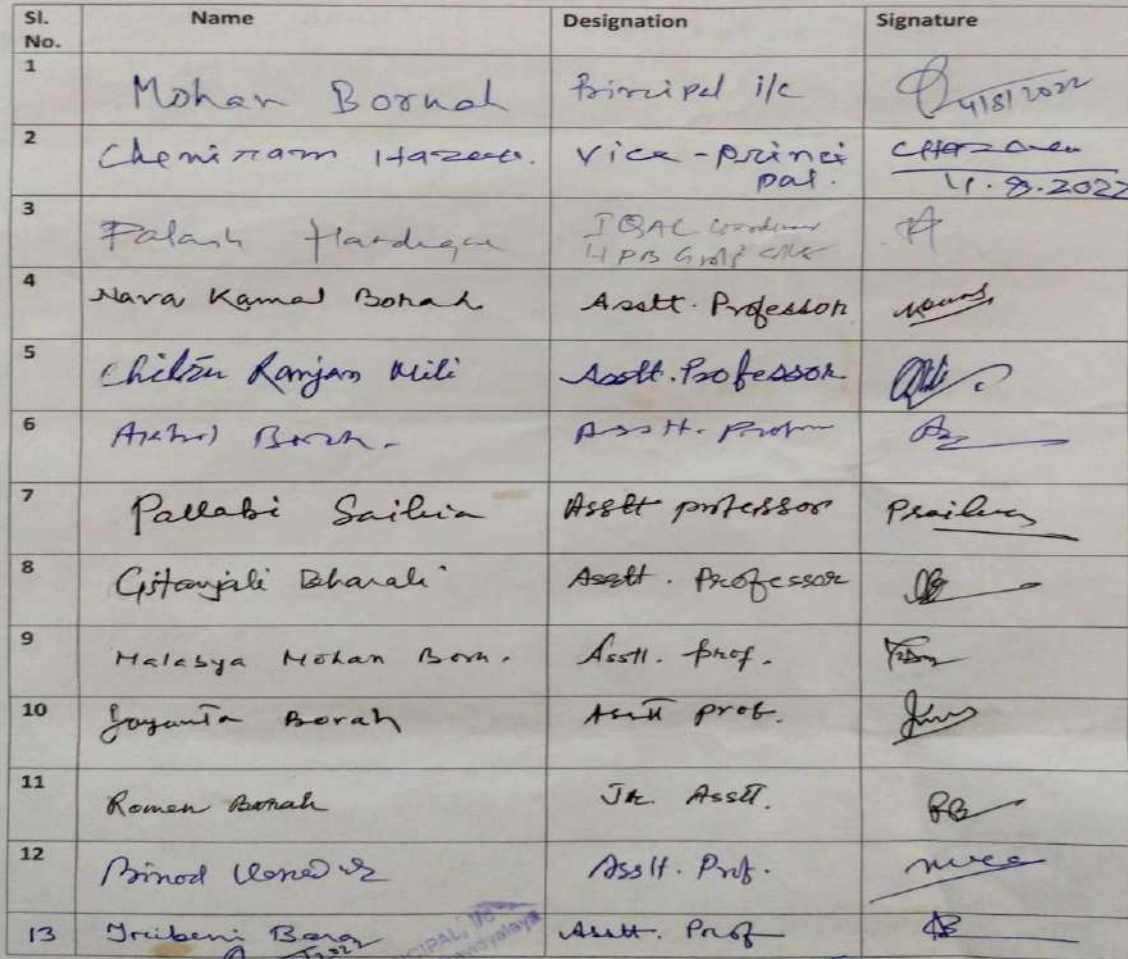 Sl. No. Name Designation Signature
1 Mohan Boruah Principal i/c 4/8/2022
2 Cheniram Hazarika. Vice-princi
pal. 4.8.2022
3 Palash Hazarika IQAC
4 Nava Kamal Borah Asstt. Professor
5 Chitra Ranjan Mili Asstt. Professor
6 Borah. Asstt. Profr
7 Pallabi Saikia Asstt professor Psaikia
8 Gitanjali Bharali Asstt. Professor
9 Malasya Mohan Bora. Asstt. prof.
10 Jayanta Borah Asstt prof.
11 Romen Borah Jr. Asstt. RB
12 Binod Asstt. Prof.
13 Tribeni Bora Asstt. Prof